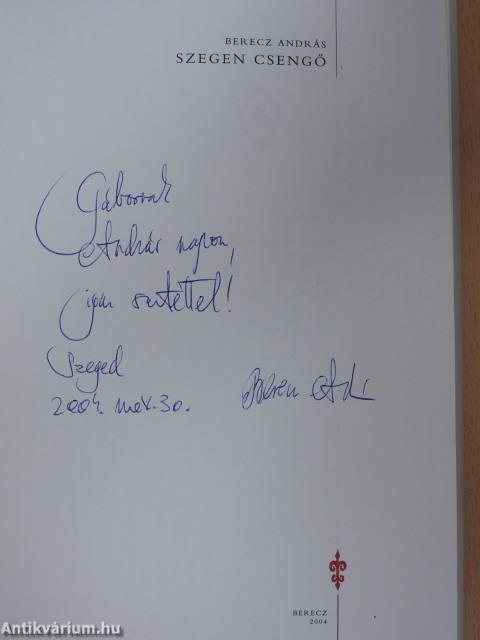 BERECZ ANDRÁS
SZEGEN CSENGŐ
Gábornak
András napon,
igaz
Szeged
2004. nov. 30.
BERECZ
2004
Antikvárium.hu